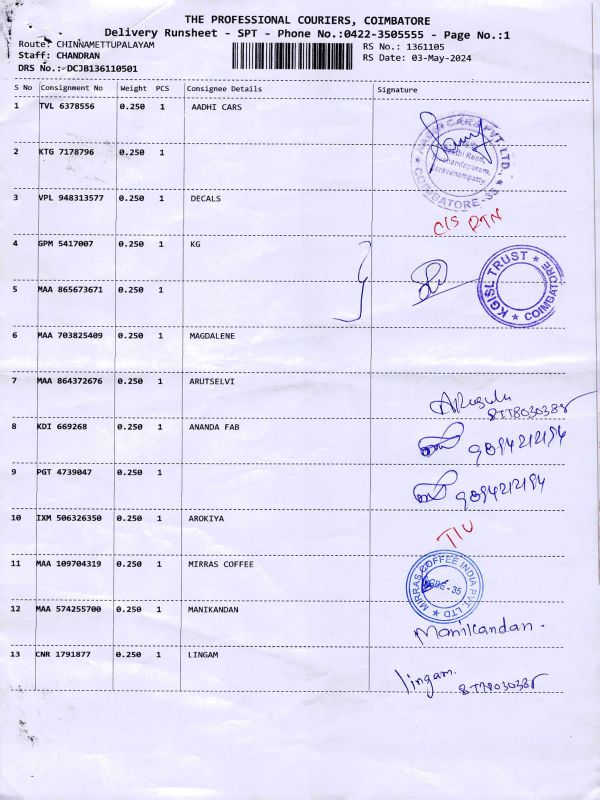 THE PROFESSIONAL COURIERS, COIMBATORE
Delivery Runsheet - SPT - Phone No.:0422-3505555 - Page No.:1
Route: CHINNAMETTUPALAYAM RS No.: 1361105
Staff: CHANDRAN RS Date: 03-May-2024
DRS No.:-DCJB136110501
S No Consignment No Weight PCS Consignee Details Signature
1 TVL 6378556 0.250 1 AADHI CARS
CARS PVT. LTD. COIMBATORE-35
2 KTG 7178796 0.250 1
3 VPL 948313577 0.250 1 DECALS
C/S RTN
4 GPM 5417007 0.250 1 KG
KGISL TRUST ★ COIMBATORE ★
5 MAA 865673671 0.250 1
6 MAA 703825409 0.250 1 MAGDALENE
7 MAA 864372676 0.250 1 ARUTSELVI
8778030385
8 KDI 669268 0.250 1 ANANDA FAB
9894212194
9 PGT 4739047 0.250 1
9894212194
10 IXM 506326350 0.250 1 AROKIYA
11 MAA 109704319 0.250 1 MIRRAS COFFEE
MIRRAS COFFEE INDIA PVT. LTD ★
CBE-35
12 MAA 574255700 0.250 1 MANIKANDAN
Manikandan.
13 CNR 1791877 0.250 1 LINGAM
lingam. 8778030385